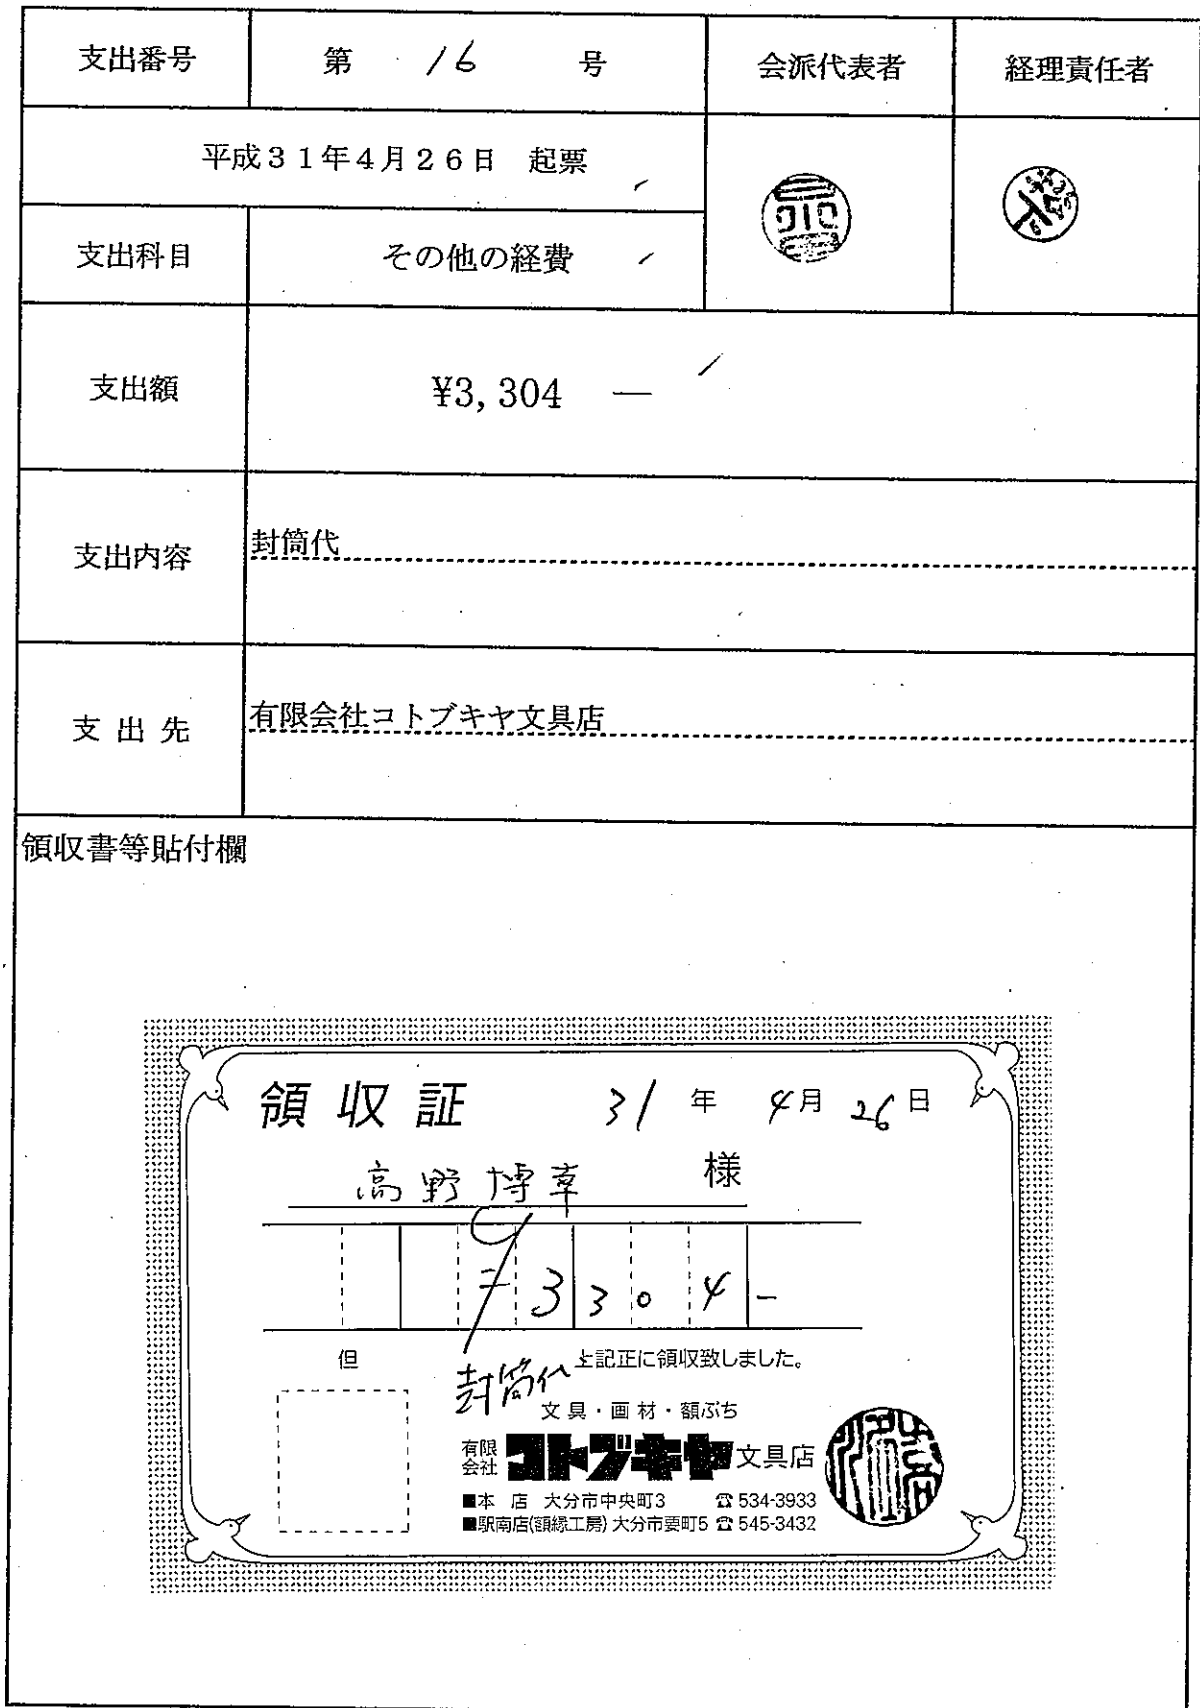 支出番号 第 16 号 会派代表者 経理責任者
平成31年4月26日 起票
支出科目 その他の経費
支出額 ¥3,304 —
支出内容 封筒代
支出先 有限会社コトブキヤ文具店
領収書等貼付欄
領収証 31年 4月 26日
高野博幸 様
₹3304-
但 封筒代 上記正に領収致しました。
文具・画材・額ぶち
有限会社 コトブキヤ 文具店
■本 店 大分市中央町3 ☎534-3933
■駅南店(額縁工房) 大分市要町5 ☎545-3432